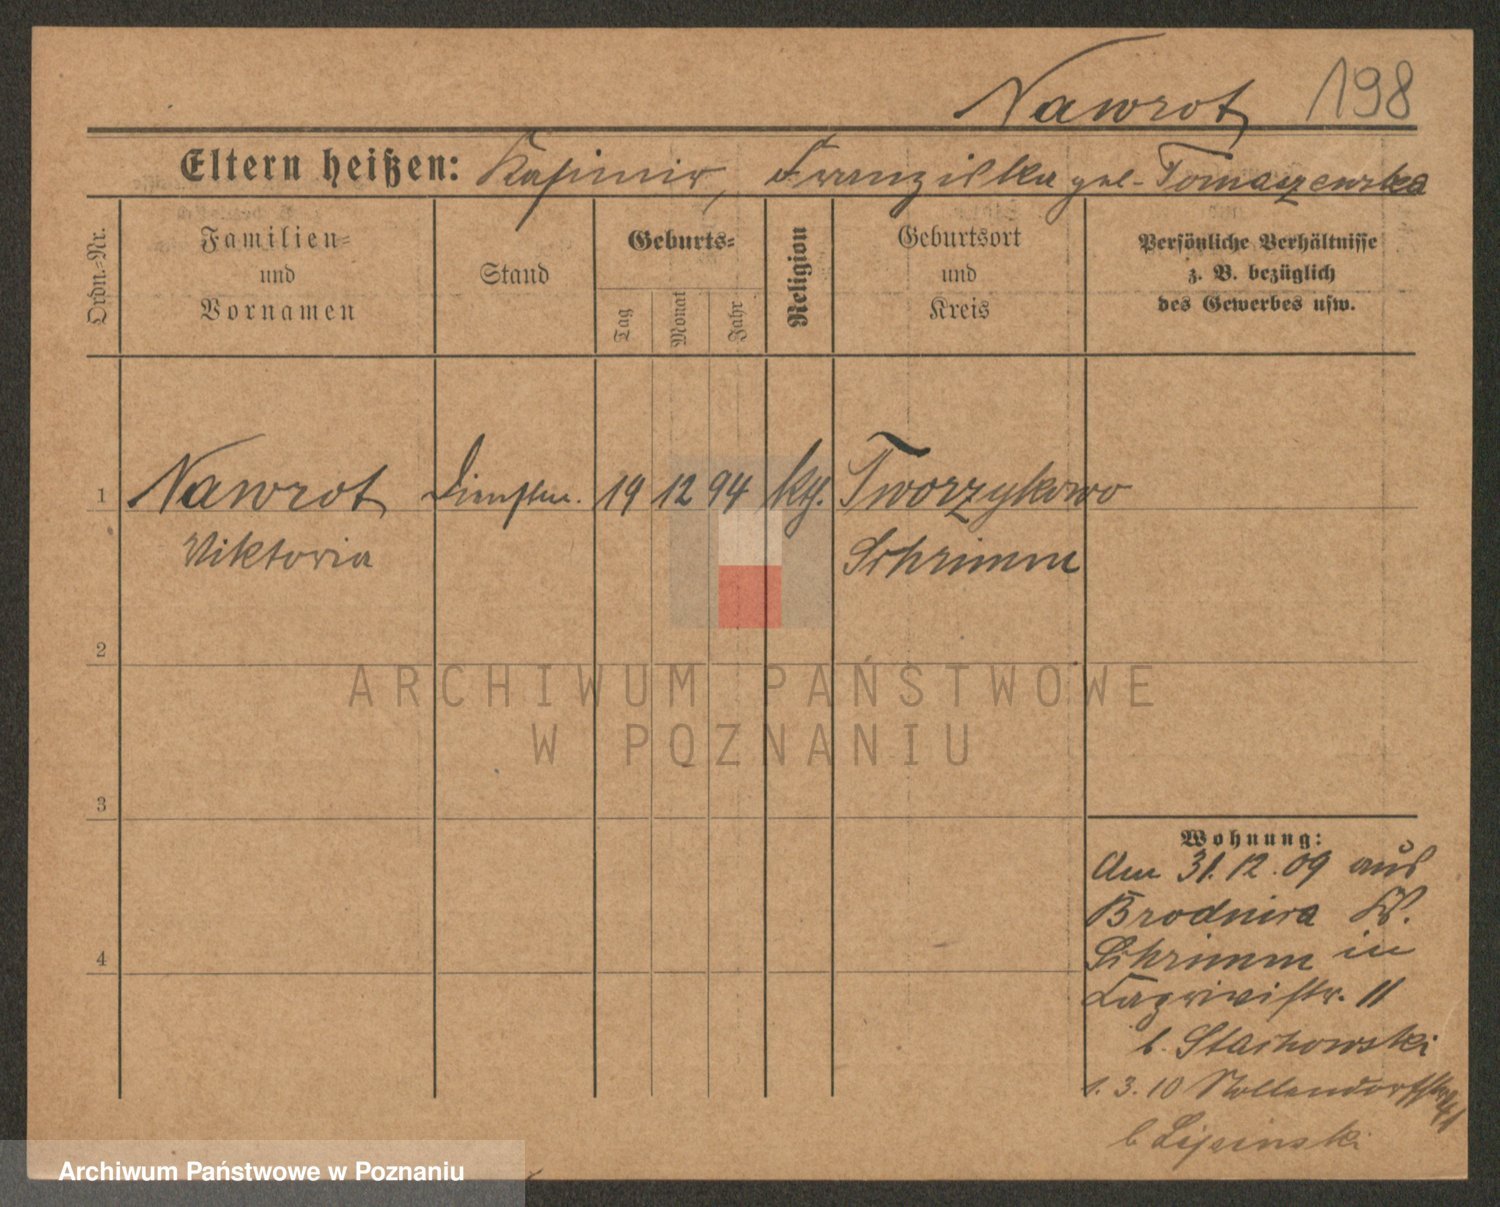 Nawrot 198
Eltern heißen: Kasimir, Franziska geb. Tomaszewska
Ordn.-Nr.
Familien-
und
Vornamen
Stand
Geburts-
Tag
Monat
Jahr
Religion
Geburtsort
und
Kreis
Persönliche Verhältnisse
z. B. bezüglich
des Gewerbes usw.
1 Nawrot Dienstm. 19 12 94 kth. Tworzykowo
Viktoria Schrimm
2
3
4
Wohnung:
Am 31.12.09 aus
Brodnica Kr.
Schrimm in
11
b. Stachowski
1.3.10 Nollendorfstr.
b
ARCHIWUM PAŃSTWOWE
W POZNANIU
Archiwum Państwowe w Poznaniu